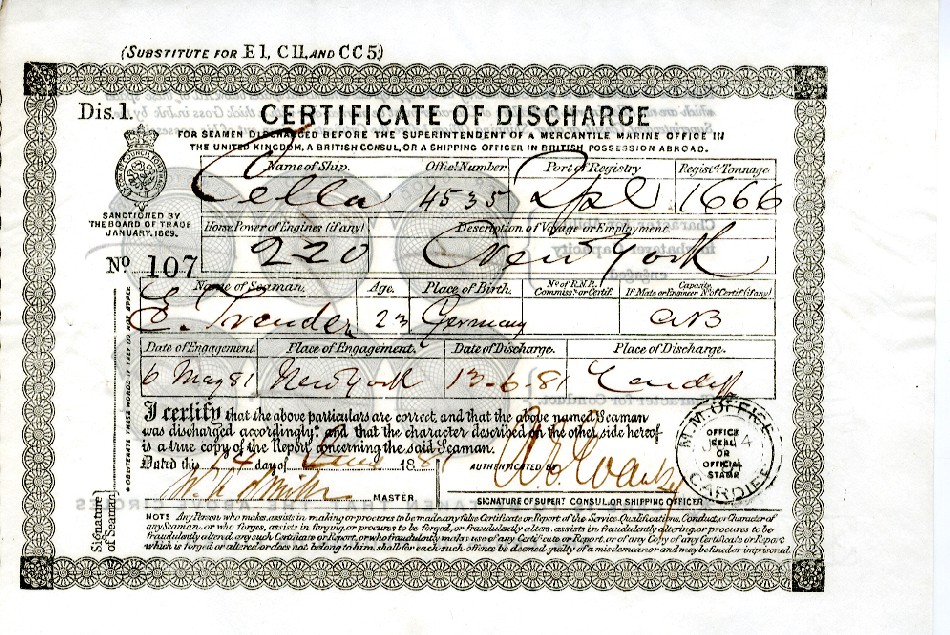 (SUBSTITUTE FOR E1, C11, AND CC5)
Dis. 1.
CERTIFICATE OF DISCHARGE
FOR SEAMEN DISCHARGED BEFORE THE SUPERINTENDENT OF A MERCANTILE MARINE OFFICE IN
THE UNITED KINGDOM, A BRITISH CONSUL, OR A SHIPPING OFFICER IN BRITISH POSSESSION ABROAD.
SANCTIONED BY
THE BOARD OF TRADE
JANUARY. 1869.
No 107
Name of Ship. Offic!. Number Port of Registry Regist.d Tonnage
Cella 4535 Lpl 1666
Horse Power of Engines (if any) Description of Voyage or Employment
220 New York
Name of Seaman. Age. Place of Birth. No. of R.N.R. Commisst. or Certif. Capacity. If Mate or Engineer No. of Certif (if any)
E. 23 Germany AB
Date of Engagement Place of Engagement. Date of Discharge. Place of Discharge.
6 May 81 New York 13-6-81 Cardiff
I certify that the above particulars are correct, and that the above named Seaman
was discharged accordingly, and that the character described on the other side hereof
is a true copy of the Report concerning the said Seaman.
Dated this 14 day of June 1881 AUTHENTICATED BY
MASTER.
SIGNATURE OF SUPERT. CONSUL, OR SHIPPING OFFICER
Signature of Seaman.
M.M. OFFICE
OFFICE
SEAL
OR
OFFICIAL
STAMP
CARDIFF
NOTE Any Person who makes, assists in making or procures to be made, any false Certificate or Report of the Service, Qualifications, Conduct, or Character of
any Seaman, or who forges, assists in forging, or procures to be forged, or fraudulently alters, assists in fraudulently altering, or procures to be
fraudulently altered, any such Certificate or Report, or who fraudulently makes use of any Certificate or Report, or of any Copy of any Certificate or Report
which is forged or altered or does not belong to him, shall for each such offence be deemed guilty of a misdemeanor and may be fined or imprisoned